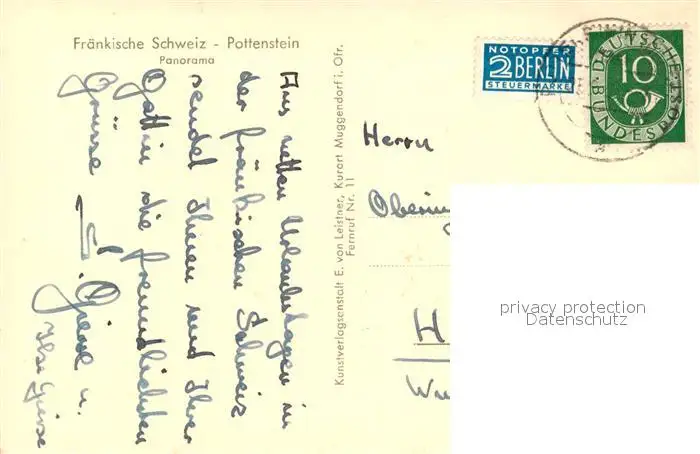 Fränkische Schweiz - Pottenstein
Panorama
Aus netten Urlaubstagen in
der fränkischen Schweiz
sendet Ihnen und Ihrer
Gattin die freundlichsten
Grüsse
u.
Ilse Giese
Kunstverlagsanstalt E. von Leistner, Kurort Muggendorf i. Ofr.
Fernruf Nr. 11
NOTOPFER
2 BERLIN
STEUERMARKE
DEUTSCHE BUNDESPOST
10
Herrn
H
privacy protection
Datenschutz